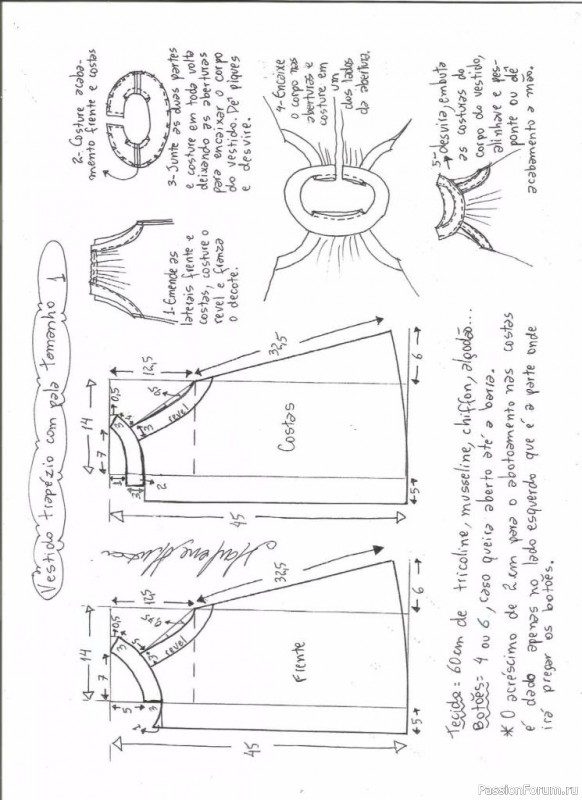 Vestido trapézio com pala tamanho 1
1- Emende as
laterais frente e
costas, costure o
revel e franza
o decote.
2- Costure acaba-
mento frente e costas
3- Junte as duas partes
e costure em toda volta
deixando as aberturas
para encaixar o corpo
do vestido. Dê piques
e desvire.
4- Encaixe
o corpo nas
aberturas e
costure em
um
dos lados
da abertura.
5- desvira, embuta
as costuras do
corpo do vestido,
alinhave e pes-
ponte ou dê
acabamento a mão.
14
7
0,5
12,5
32,5
3
5
3
0,5
revel
5
3
2
Frente
45
6
5
Marlene Mukai
14
7
0,5
12,5
32,5
3
4
3
0,5
revel
1
3
2
Costas
45
6
5
Tecido = 60cm de tricoline, musseline, chiffon, algodão...
Botões = 4 ou 6, caso queira aberto até a barra.
* O acréscimo de 2 cm para o abotoamento nas costas
é dado apenas no lado esquerdo que é a parte onde
irá pregar os botões.
PassionForum.ru